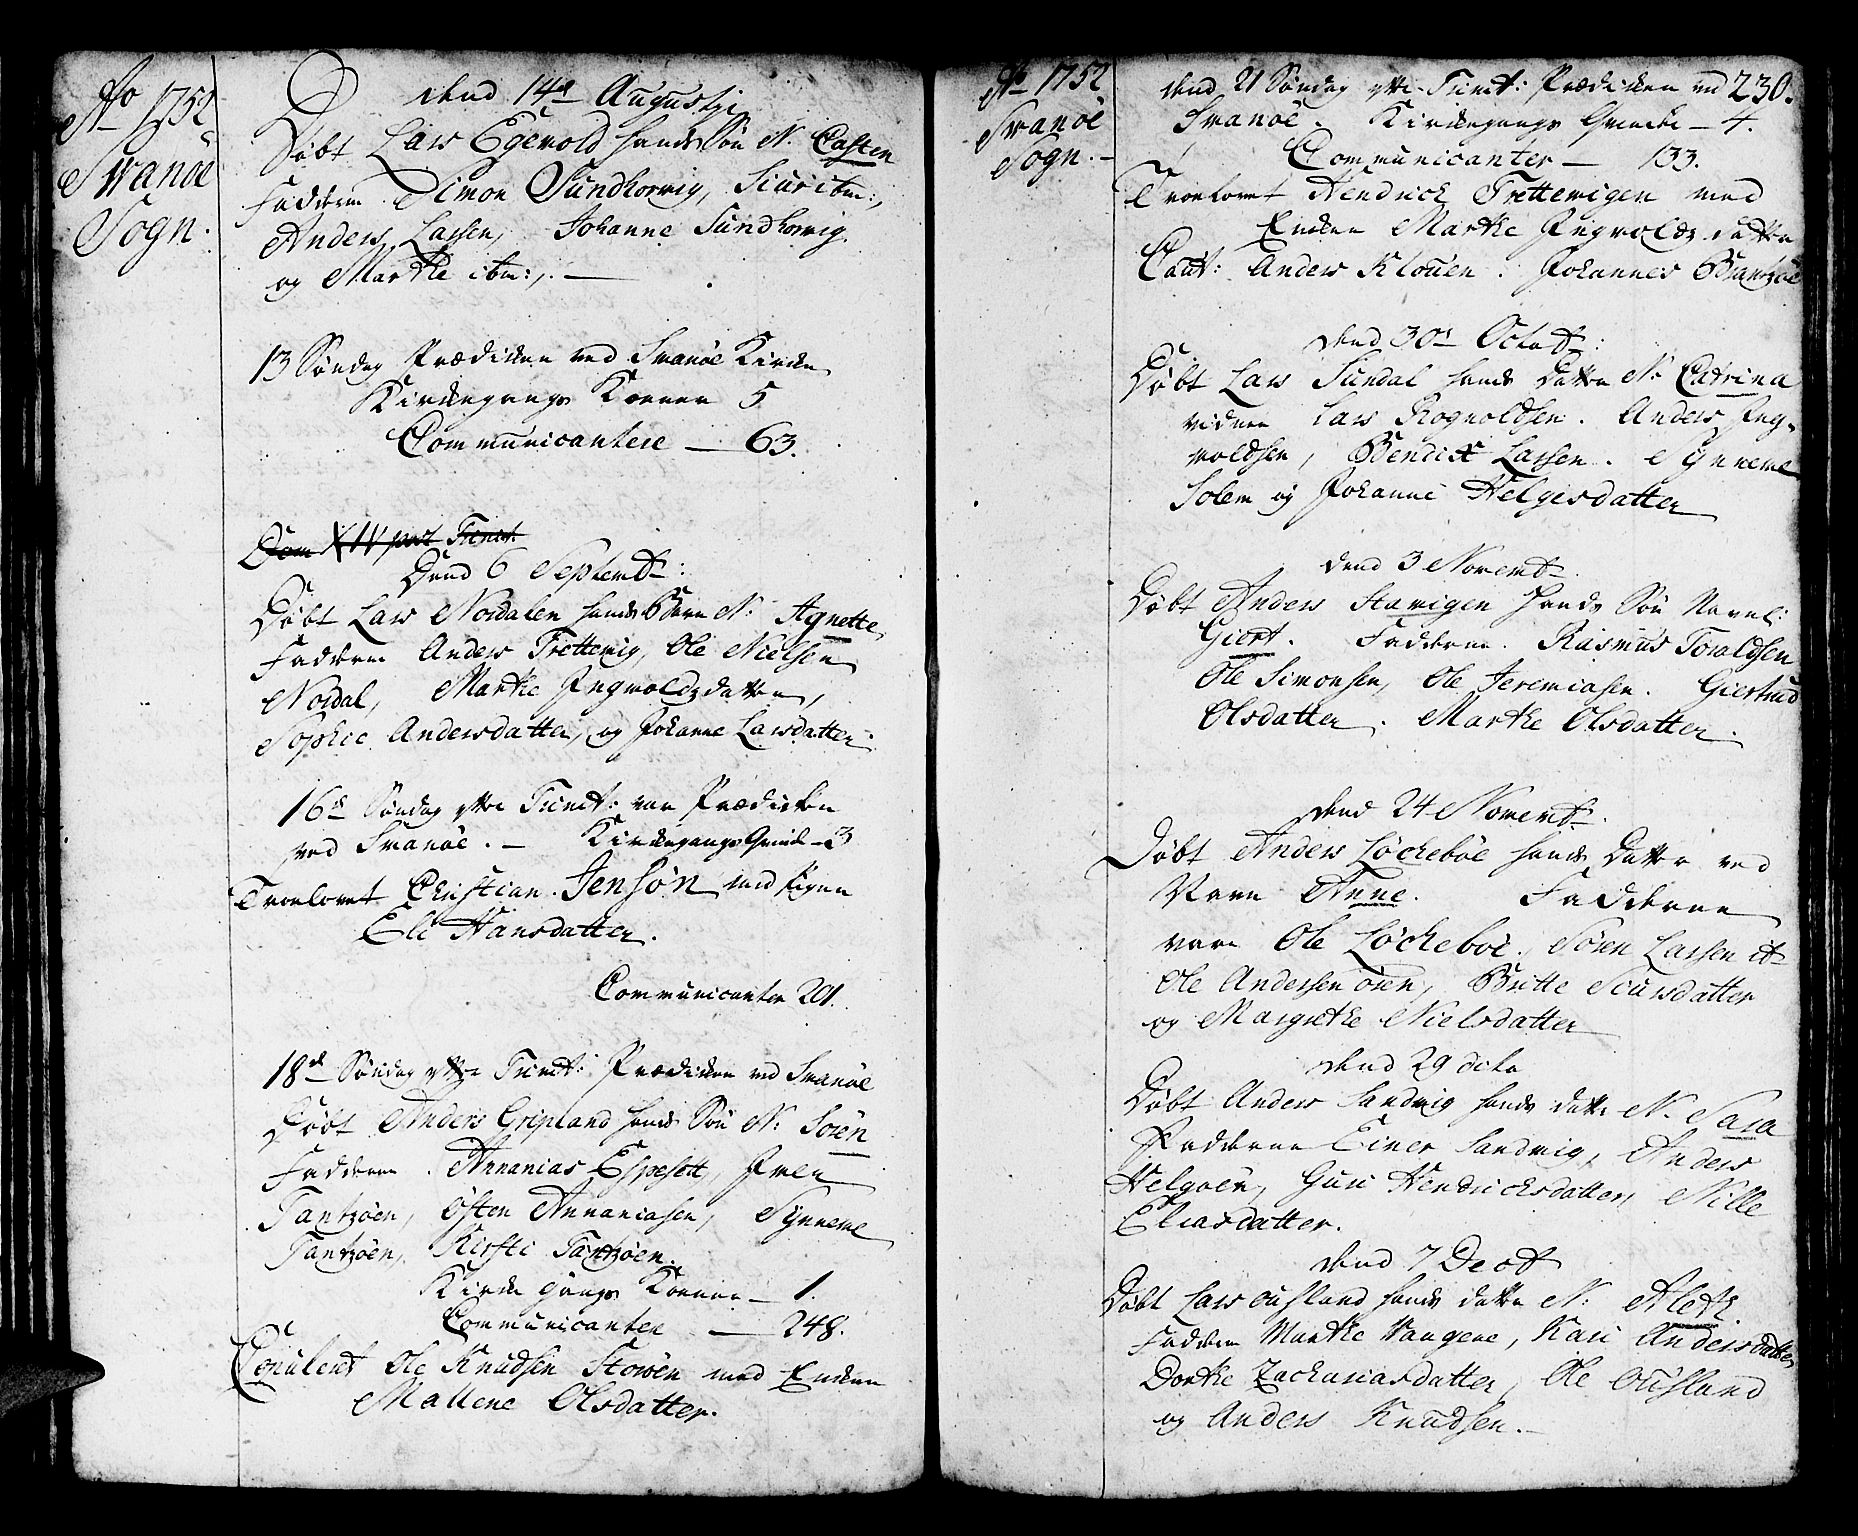 Ao 1752
Svanöe
Sogn.
Dend 14de Augustij
Döbt Lars Egevold hands Sön N. Casten
Faddere Simon Sundhovig, Siuri ibm:,
Anders Larsen, Johanne Sundhovig
og Marthe ibm:,
13 Söndag Prædicken ved Svanöe Kircke
Kirckegangs Konner 5
Communicantere — 63.
Dom XIV post Trinit.
Dend 6 Septembr:
Döbt Lars Nordalen hands Barn N: Agnette
Faddere Anders Trettevig, Ole Nielsen
Nordal, Marthe Ingvoldsdatter,
Sophie Andersdatter, og Johanne Larsdatter.
16de Söndag efter Trinit: var Prædicken
ved Svanöe. — Kirckegangs Qvind — 3
Troelovet Christian Jensön med Pigen
Eli Hansdatter.
Communicanter 201.
18de Söndag efter Trinit: Prædicken ved Svanöe
Döbt Anders Gripland hands Sön N: Sören
Faddere Annanias Espesett, Iver
Tantzöen, Östen Annaniasen, Synneve
Tantzöen, Kirsti Tantzöen.
Kircke gangs Konner — 1.
Communicanter — 248.
Copuleret Ole Knudsen Stowen med Encken
Mallene Olsdatter.
Ao 1752
Svanöe
Sogn. —
230.
Dend 21 Söndag efter Trinit: Prædicken ved
Svanöe. Kirckegangs Qvinder — 4.
Communicanter — 133.
Troelovet Hendrick Trettevigen med
Encken Marthe Ingvolds datter
Caut: Anders Klouen. Johannes Brantzöe
Dend 30te Octobr:
Döbt Lars Sundal hands Datter N: Catrina
vidner Lars Rognoldsen. Anders Ing-
voldsen, Bendix Larsen. Synneve
Solem og Johanne Helgesdatter
Dend 3 Novembr
Döbt Anders Stavigen hands Sön Navnl:
Giert. Faddere. Rasmus Toraldsen
Ole Simonsen, Ole Jeremiasen. Giertrud
Olsdatter. Marthe Olsdatter.
Dend 24 Novembr.
Döbt Anders Löckeböe hands Datter ved
Navn Anne. Fadderne
vare Ole Löckeböe, Sören Larsen ib
Ole Andersen ören, Britte Siursdatter
og Margrethe Nielsdatter
Dend 29 octo
Döbt Anders Sandvig hands datter N. Sara
Fadderne Einer Sandvig, Anders
Helgöen, Guri Hendricksdatter, Nille
Eliasdatter.
Dend 7 Decbr
Döbt Lars ousland hands datter N: Aleth
Faddere Marthe Vangene, Kari Andersdatter
Dorthe Zachariasdatter, Ole Ousland
og Anders Knudsen. —